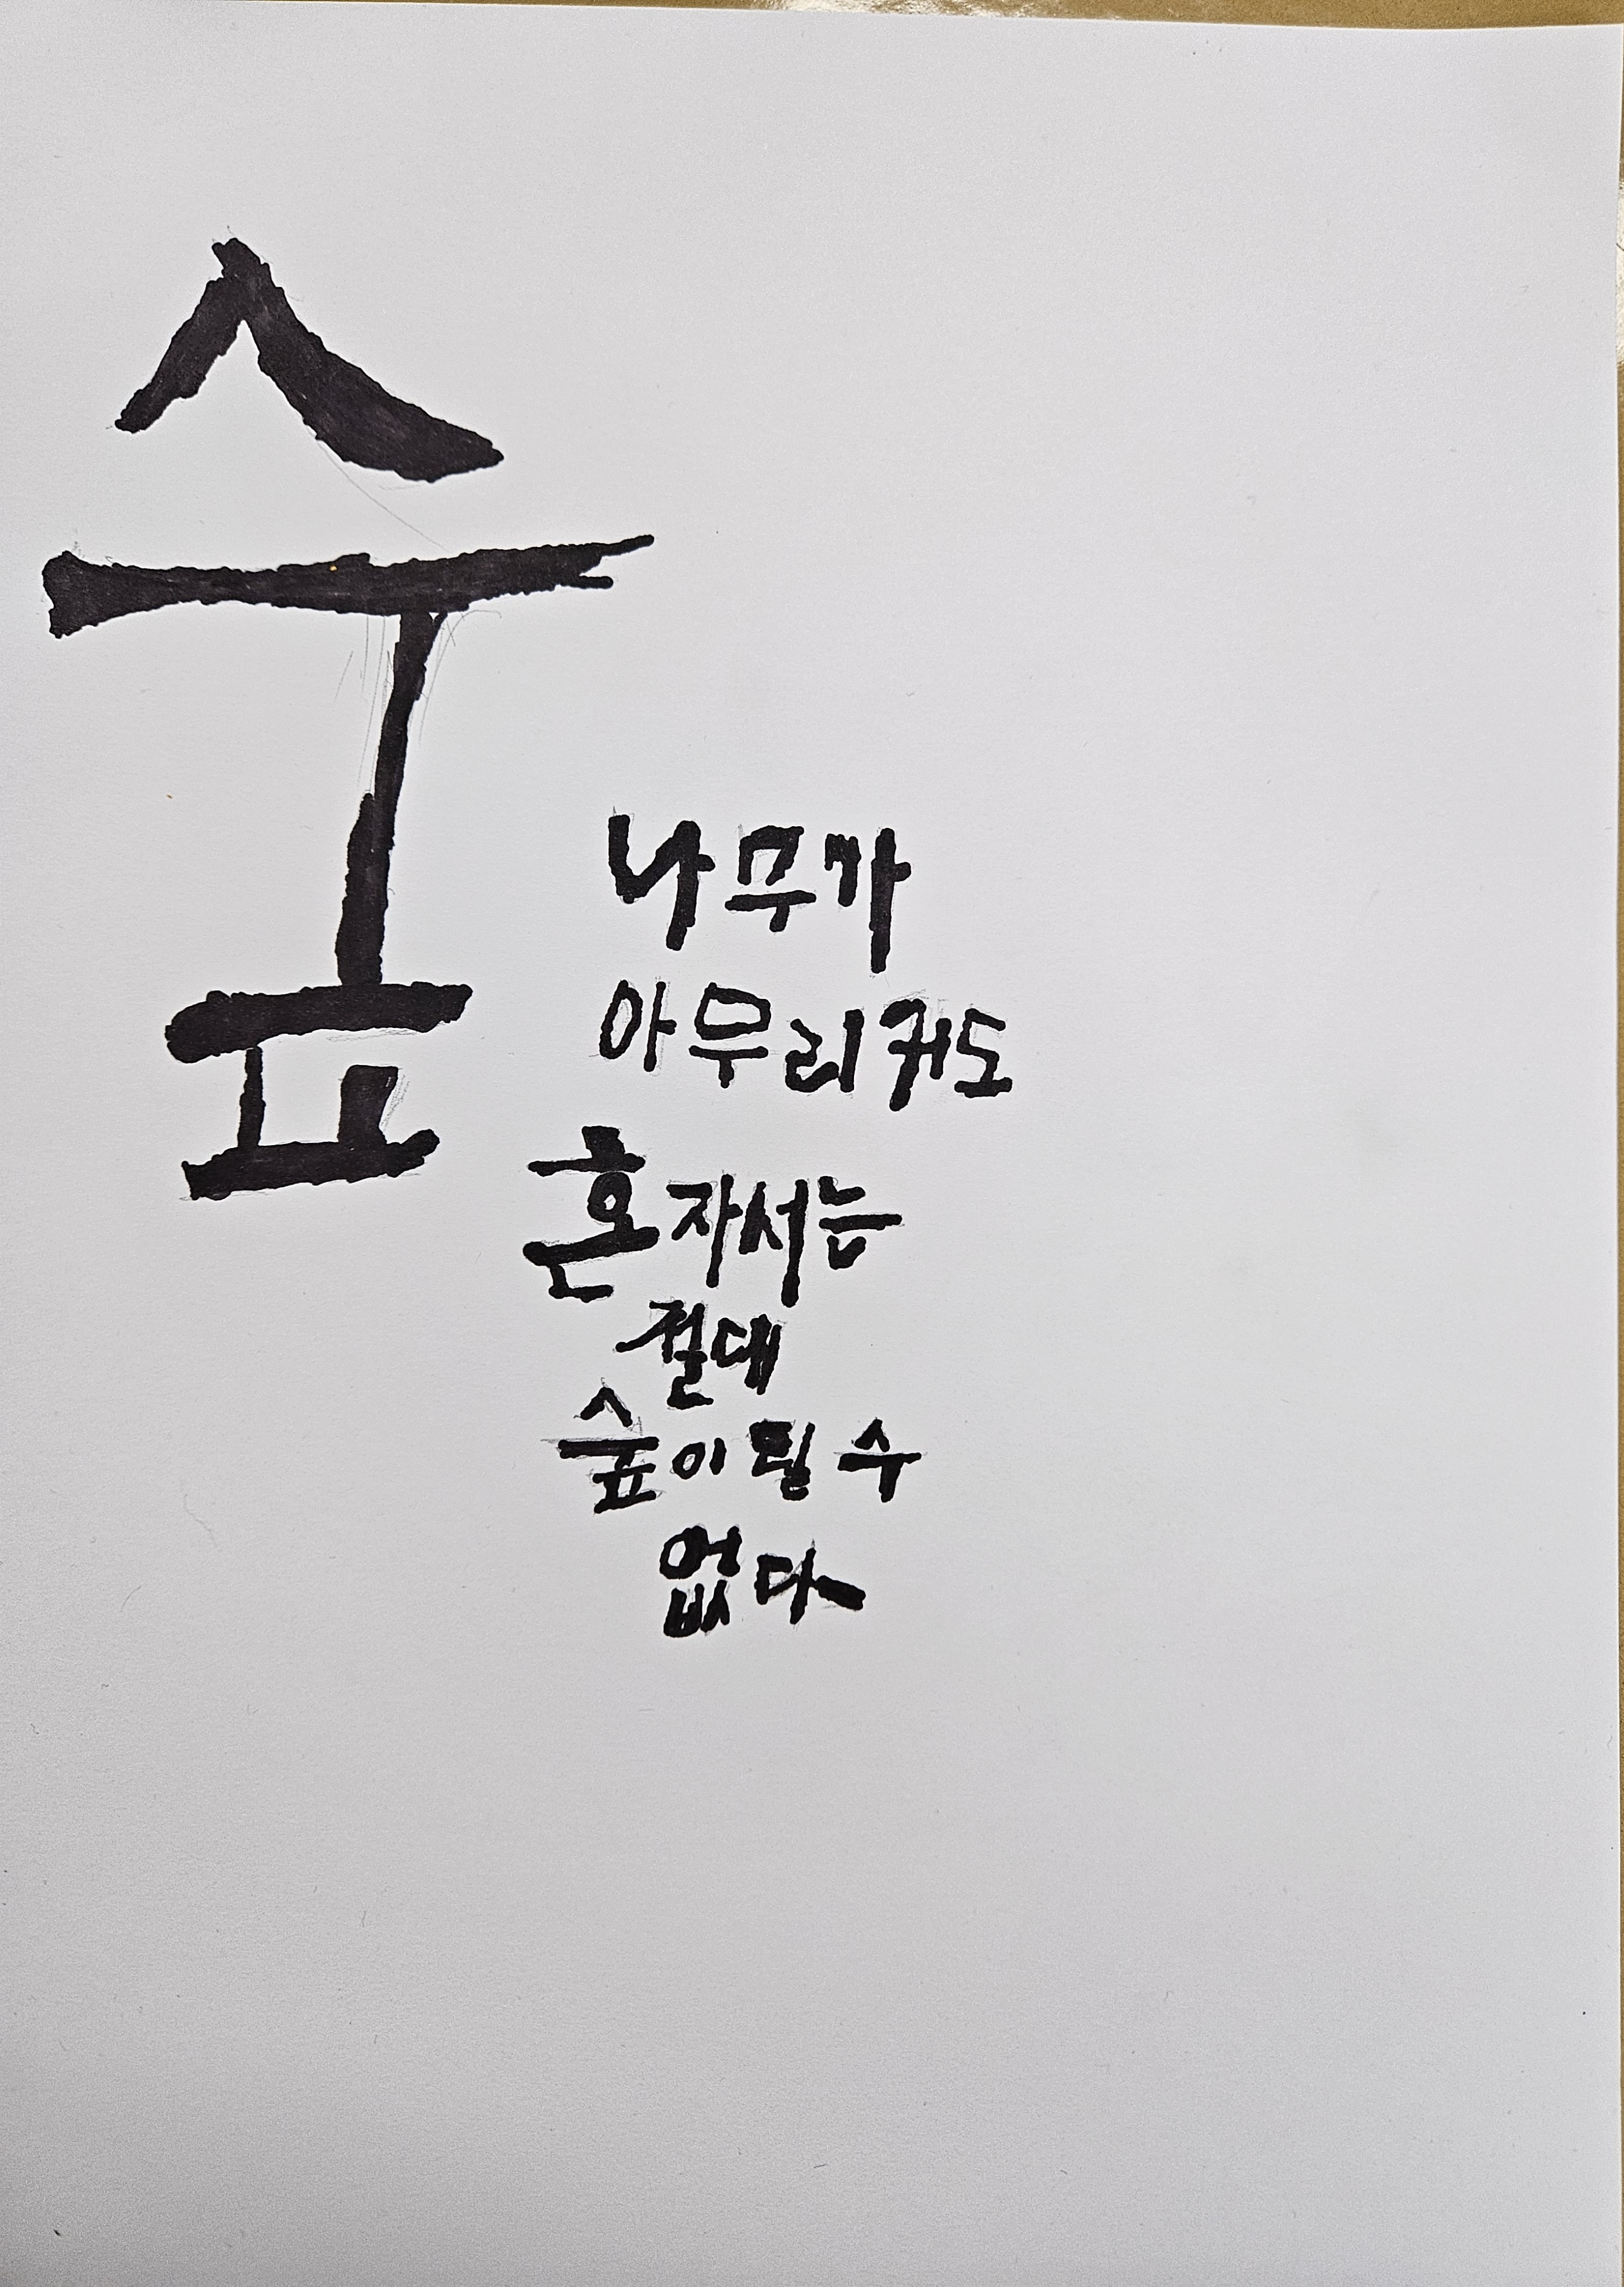 숲
나무가
아무리 커도
혼자서는
절대
숲이 될 수
없다